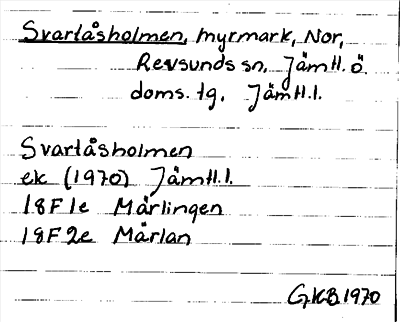 Svartåsholmen, myrmark, Nor,
Revsunds sn. Jämtl. ö.
doms. tg. Jämtl. l.
Svartåsholmen
ek (1970) Jämtl. l.
18F1e Mårlingen
18F2e Mårlan
GKB 1970